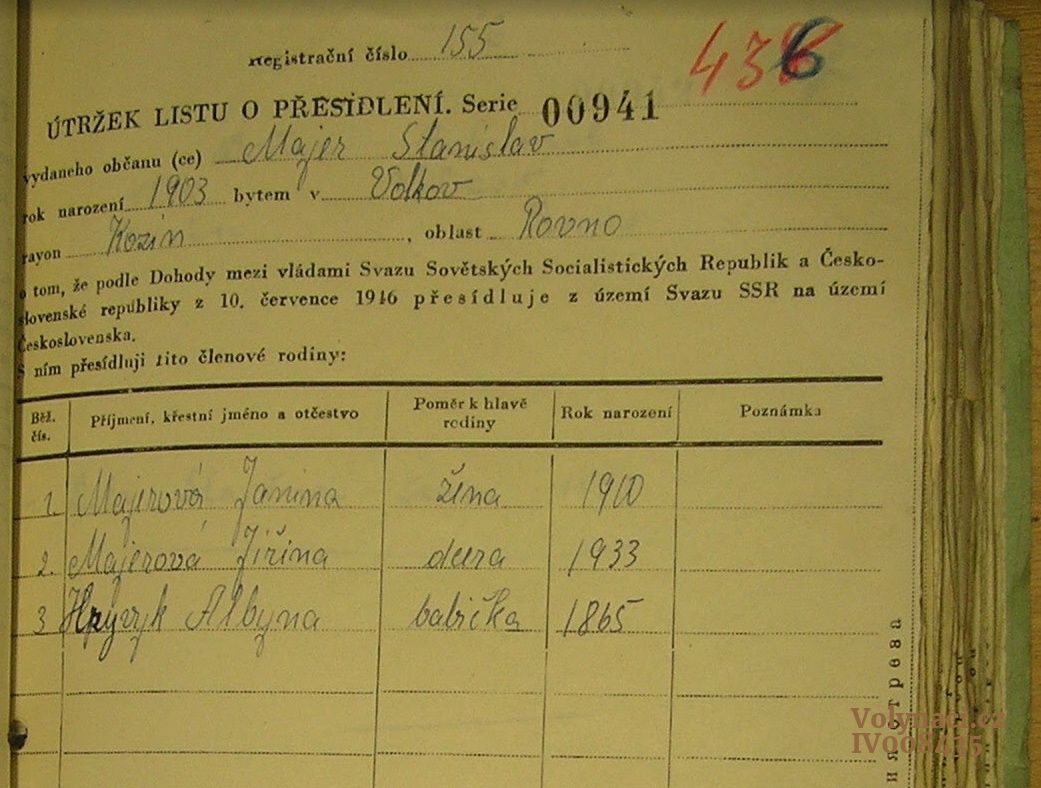 Registrační číslo 155
436
ÚTRŽEK LISTU O PŘESIDLENÍ. Serie 00941
vydaneho občanu (ce) Majer Stanislav
rok narození 1903 bytem v Volkov
rayon Kozin, oblast Rovno
o tom, že podle Dohody mezi vládami Svazu Sovětských Socialistických Republik a Česko-
slovenské republiky z 10. července 1946 přesídluje z území Svazu SSR na území
Československa.
S ním přesídluji tito členové rodiny:
Běž. čís. Příjmení, křestní jméno a otčestvo Poměr k hlavě rodiny Rok narození Poznámka
1. Majerová Janina žena 1910
2. Majerová Jiřina dcera 1933
3 Albyna babička 1865
Volynaci.cz